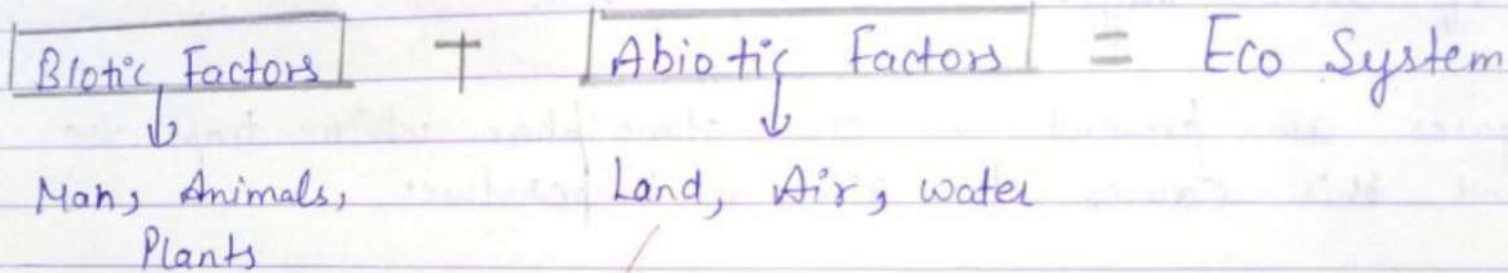 Biotic Factors + Abiotic Factors = Eco System
↓ ↓
Man, Animals, Land, Air, water
Plants